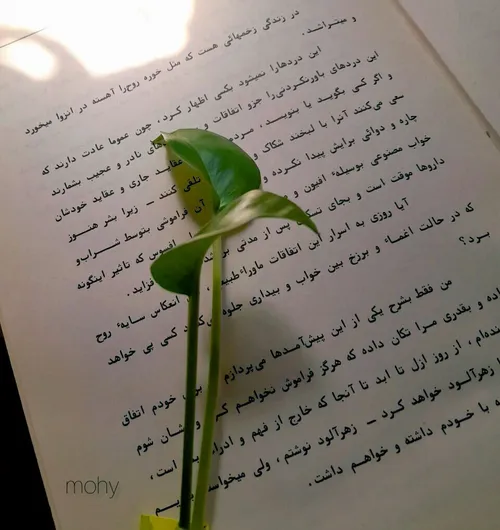 در زندگی زخمهائی هست که مثل خوره روح را آهسته در انزوا میخورد
و میتراشد.
این دردها را نمیشود بکسی اظهار کرد، چون عموما عادت دارند که
این دردهای باورنکردنی را جزو اتفاقات و نادر و عجیب بشمارند
و اگر کسی بگوید یا بنویسد، مردم عقاید جاری و عقاید خودشان
سعی می‌کنند آنرا با لبخند شکاک و تلقی کنند ـ زیرا بشر هنوز
چاره و دوائی برایش پیدا نکرده و آن فراموشی بتوسط شراب و
خواب مصنوعی بوسیله افیون و
داروها موقت است و بجای تسکین پس از مدتی بر
آیا روزی به اسرار این اتفاقات ماوراء طبیعی، انعکاس سایه روح
که در حالت اغماء و برزخ بین خواب و بیداری جلوه می‌کند کسی پی خواهد
برد؟
من فقط بشرح یکی از این پیش‌آمدها می‌پردازم خودم اتفاق
و بقدری مرا تکان داده که هرگز فراموش نخواهم کرد و نشان شوم
، از روز ازل تا ابد تا آنجا که خارج از فهم و ادراک است،
زهرآلود خواهد کرد ـ زهرآلود نوشتم، ولی میخواستم بگویم
با خودم داشته و خواهم داشت.
mohy